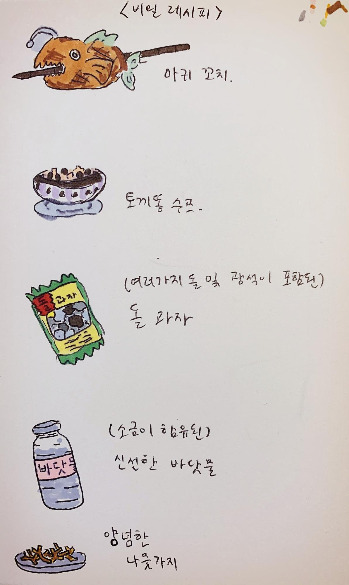 <비밀 레시피>
아귀 꼬치.
토끼똥 수프.
(여러가지 돌 및 광석이 포함된)
돌 과자
돌 과자
(소금이 함유된)
신선한 바닷물
바닷물
양념한
나뭇가지